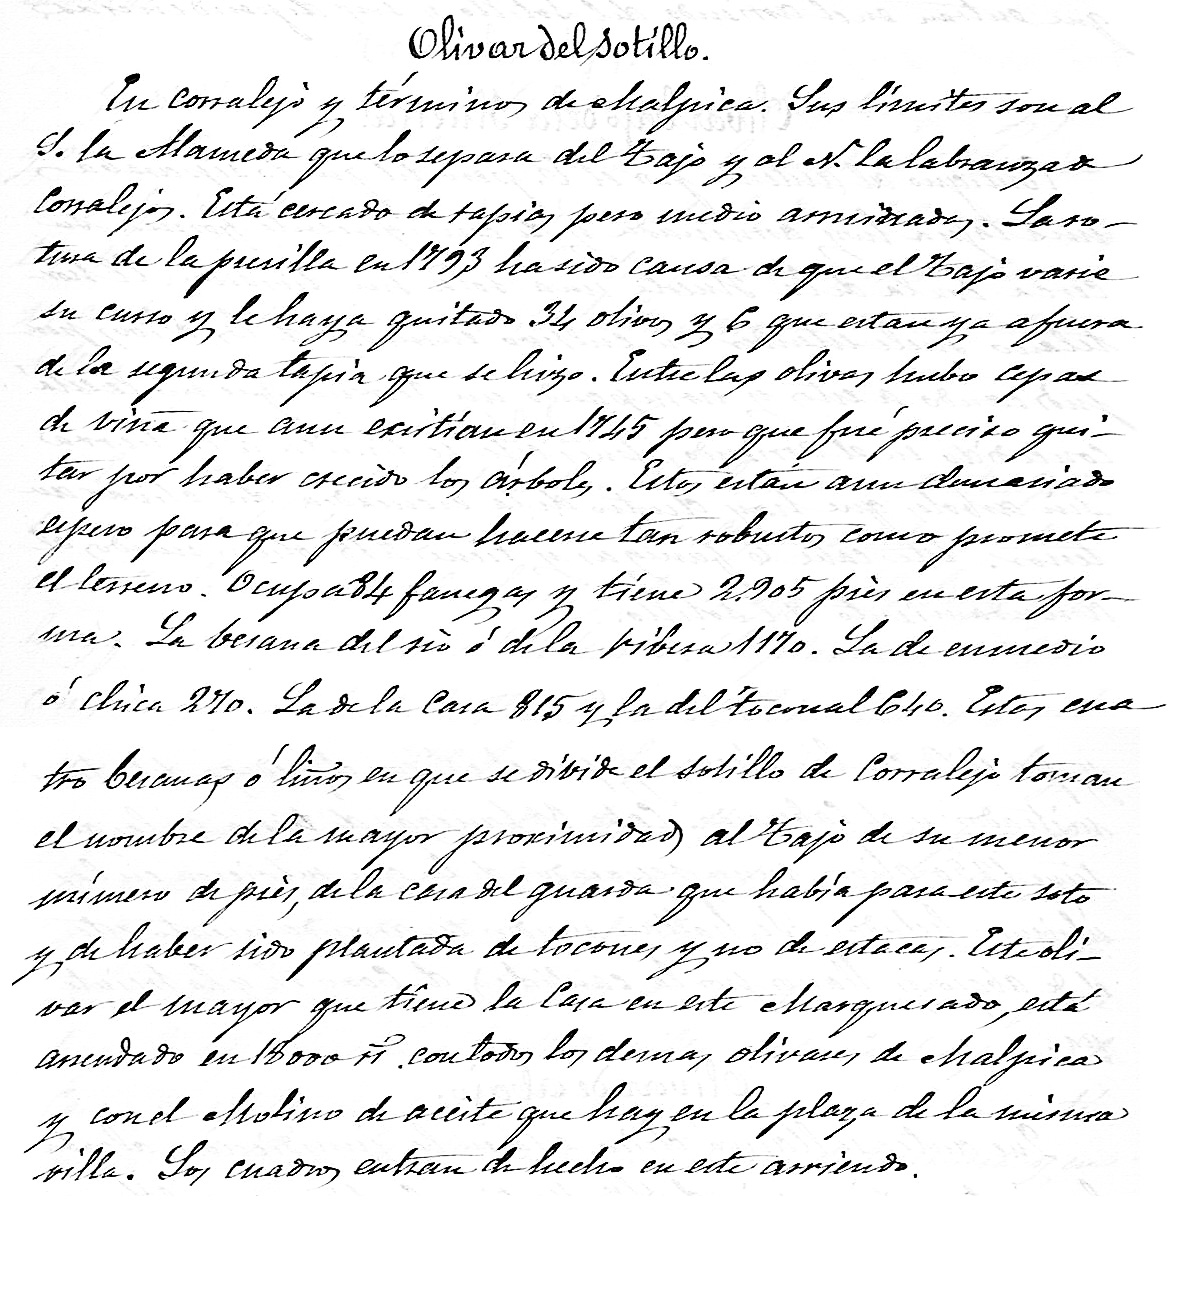 Olivar del Sotillo.
En Corralejo y términos de Malpica. Sus límites son al
S. la Alameda que lo separa del Tajo y al N. la labranza de
Corralejos. Está cercado de tapias pero medio arruinadas. La ro-
tura de la presilla en 1793 ha sido causa de que el Tajo varie
su curso y le haya quitado 34 olivos y 6 que estan ya afuera
de la segunda tapia que se hizo. Entre las olivas hubo cepas
de viña que aun existían en 1745 pero que fué preciso qui-
tar por haber crecido los árboles. Estos están aun demasiado
espeso para que puedan hacerse tan robustos como promete
el terreno. Ocupa 84 fanegas y tiene 2.905 piés en esta for-
ma. La besana del rio ó de la ribera 1170. La de enmedio
ó chica 270. La de la Casa 815 y la del toconal 640. Estas cua
tro besanas ó liños en que se divide el sotillo de Corralejo toman
el nombre de la mayor proximidad al Tajo de su menor
número de piés, de la casa del guarda que había para este soto
y de haber sido plantada de tocones y no de estacas. Este oli-
var el mayor que tiene la Casa en este Marquesado, está
arrendado en 18000 rs. con todos los demas olivares de Malpica
y con el Molino de aceite que hay en la plaza de la misma
villa. Los cuadros entran de hecho en este arriendo.